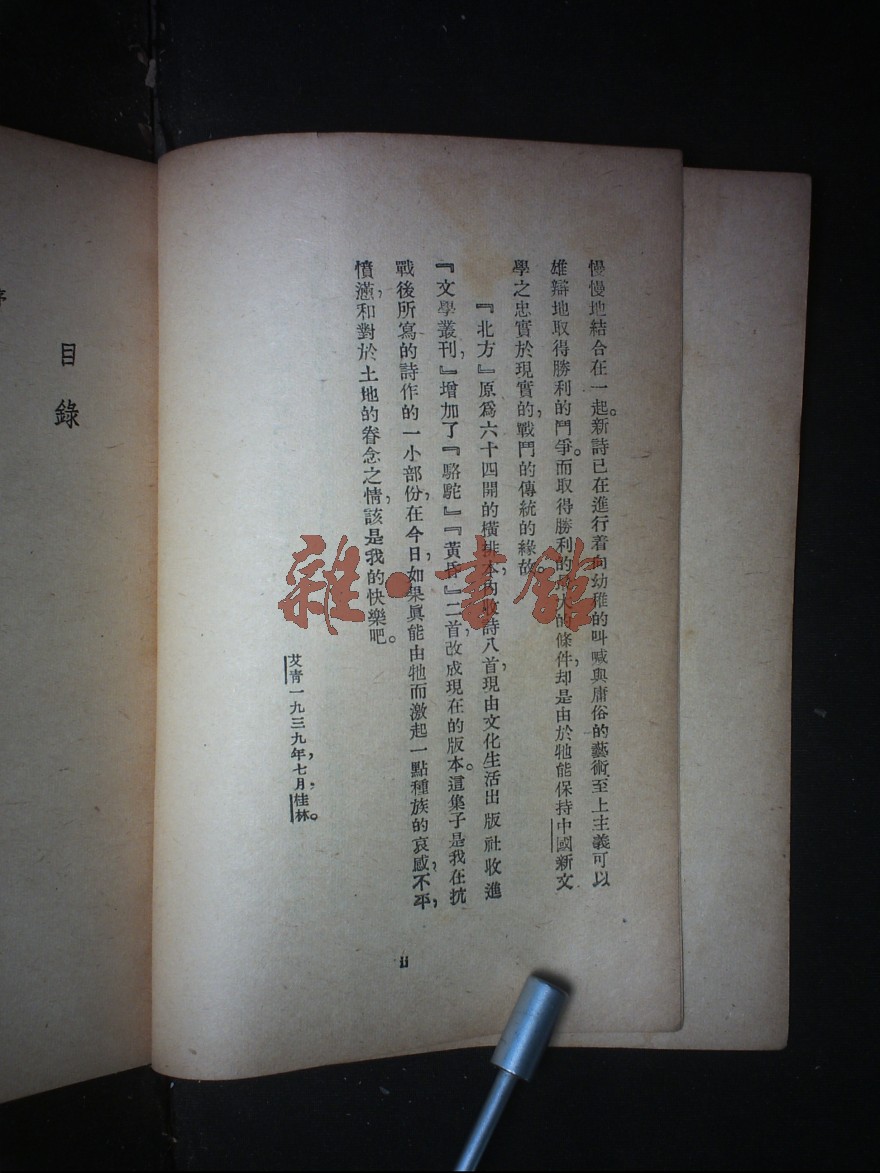 慢慢地結合在一起。新詩已在進行着向幼稚的叫喊與庸俗的藝術至上主義可以
雄辯地取得勝利的鬥爭。而取得勝利的最大的條件，却是由於牠能保持中國新文
學之忠實於現實的，戰鬥的傳統的緣故。
『北方』原爲六十四開的橫排本，內收詩八首，現由文化生活出版社收進
『文學叢刊，』增加了『駱駝』『黃昏』二首，改成現在的版本。這集子是我在抗
戰後所寫的詩作的一小部份，在今日，如果眞能由牠而激起一點種族的哀感，不平，
憤懣，和對於土地的眷念之情，該是我的快樂吧。
艾青一九三九年，七月，桂林。
ii
目錄
雜·書館